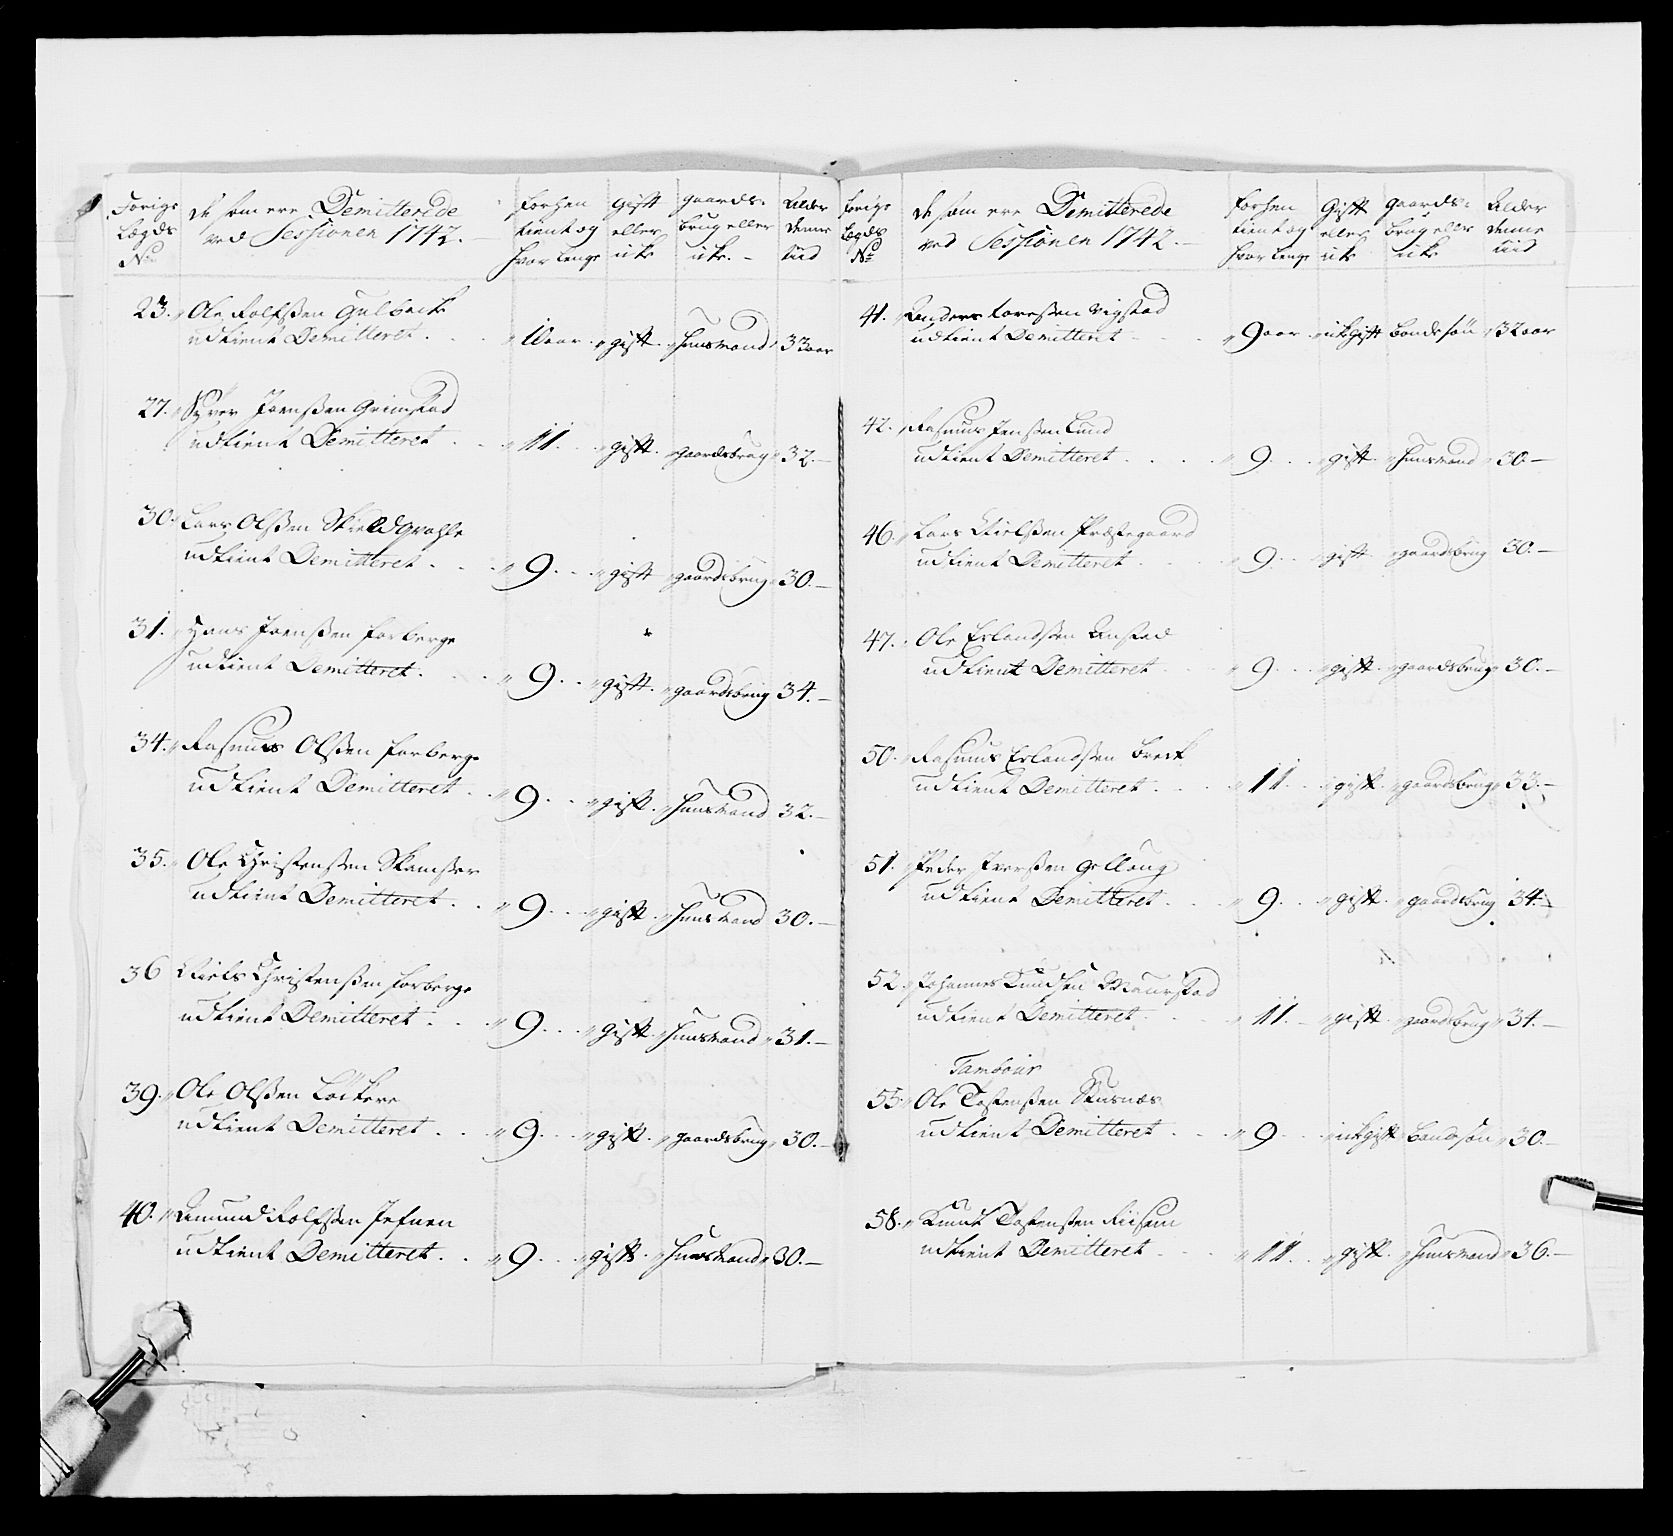 Forige Lægds No
De som ere Demitterede ved Sessionen 1742.
forhen tient og hvor lenge
gift eller ick
gaards-brug eller ick.
Alder denne tiid
23. Ole Rolfsßen Gulback
udtient Demitteret. 10 aar gift Huusmand 33 aar
27. Syver Joensßen Grimstad
udtient Demitteret 11. gift. gaardsbrug 32.
30. Lars Olsßen Skieldqvahle
udtient Demitteret. 9. gift gaardsbrug 30.
31. Hans Joensßen forberge
udtient Demitteret. 9. gift. gaardsbrug 34.
34. Rasmus Olsßen forberge
udtient Demitteret. 9. gift. Huusmand 32.
35. Ole Christensßen
udtient Demitteret. 9. gift. Huusmand 30.
36 Niels Christensßen forberge
udtient Demitteret. 9. gift. Huusmand 31.
39. Ole Olsßen Löckere
udtient Demitteret. 9. gift. gaardsbrug 30.
40. Amund Rolfsßen
udtient Demitteret. 9. gift. Huusmand 30.
forige Lægds No
De som ere Demitterede ved Sessionen 1742.
forhen tient og hvor lenge
Gift eller ick
gaards-brug eller ick
Alder denne tiid
41. Anders Laresßen Vigstad
udtient Demitteret 9 aar ick gift bondesön 32 aar
42. Rasmus Jensßen Lund
udtient Demitteret. 9. gift. Huusmand 30
46. Lars Nielsßen Præstegaard
udtient Demitteret. 9. gift. gaardsbrug 30.
47. Ole Erlandsßen
udtient Demitteret 9. gift. gaardsbrug 30.
50. Rasmus Erlandsßen
udtient Demitteret. 11. gift. gaardsbrug 33.
51. Peder Iversßen Gellaug
udtient Demitteret. 9. gift. gaardsbrug 34.
52. Johannes Knudsen Maurstad
udtient Demitteret. 11. gift. gaardsbrug 34.
Tambour
55. Ole Tostensßen
udtient Demitteret 9 ick gift bondesön 30.
58. Knud Tostensßen
udtient Demitteret. 11. gift. Huusmand 36.